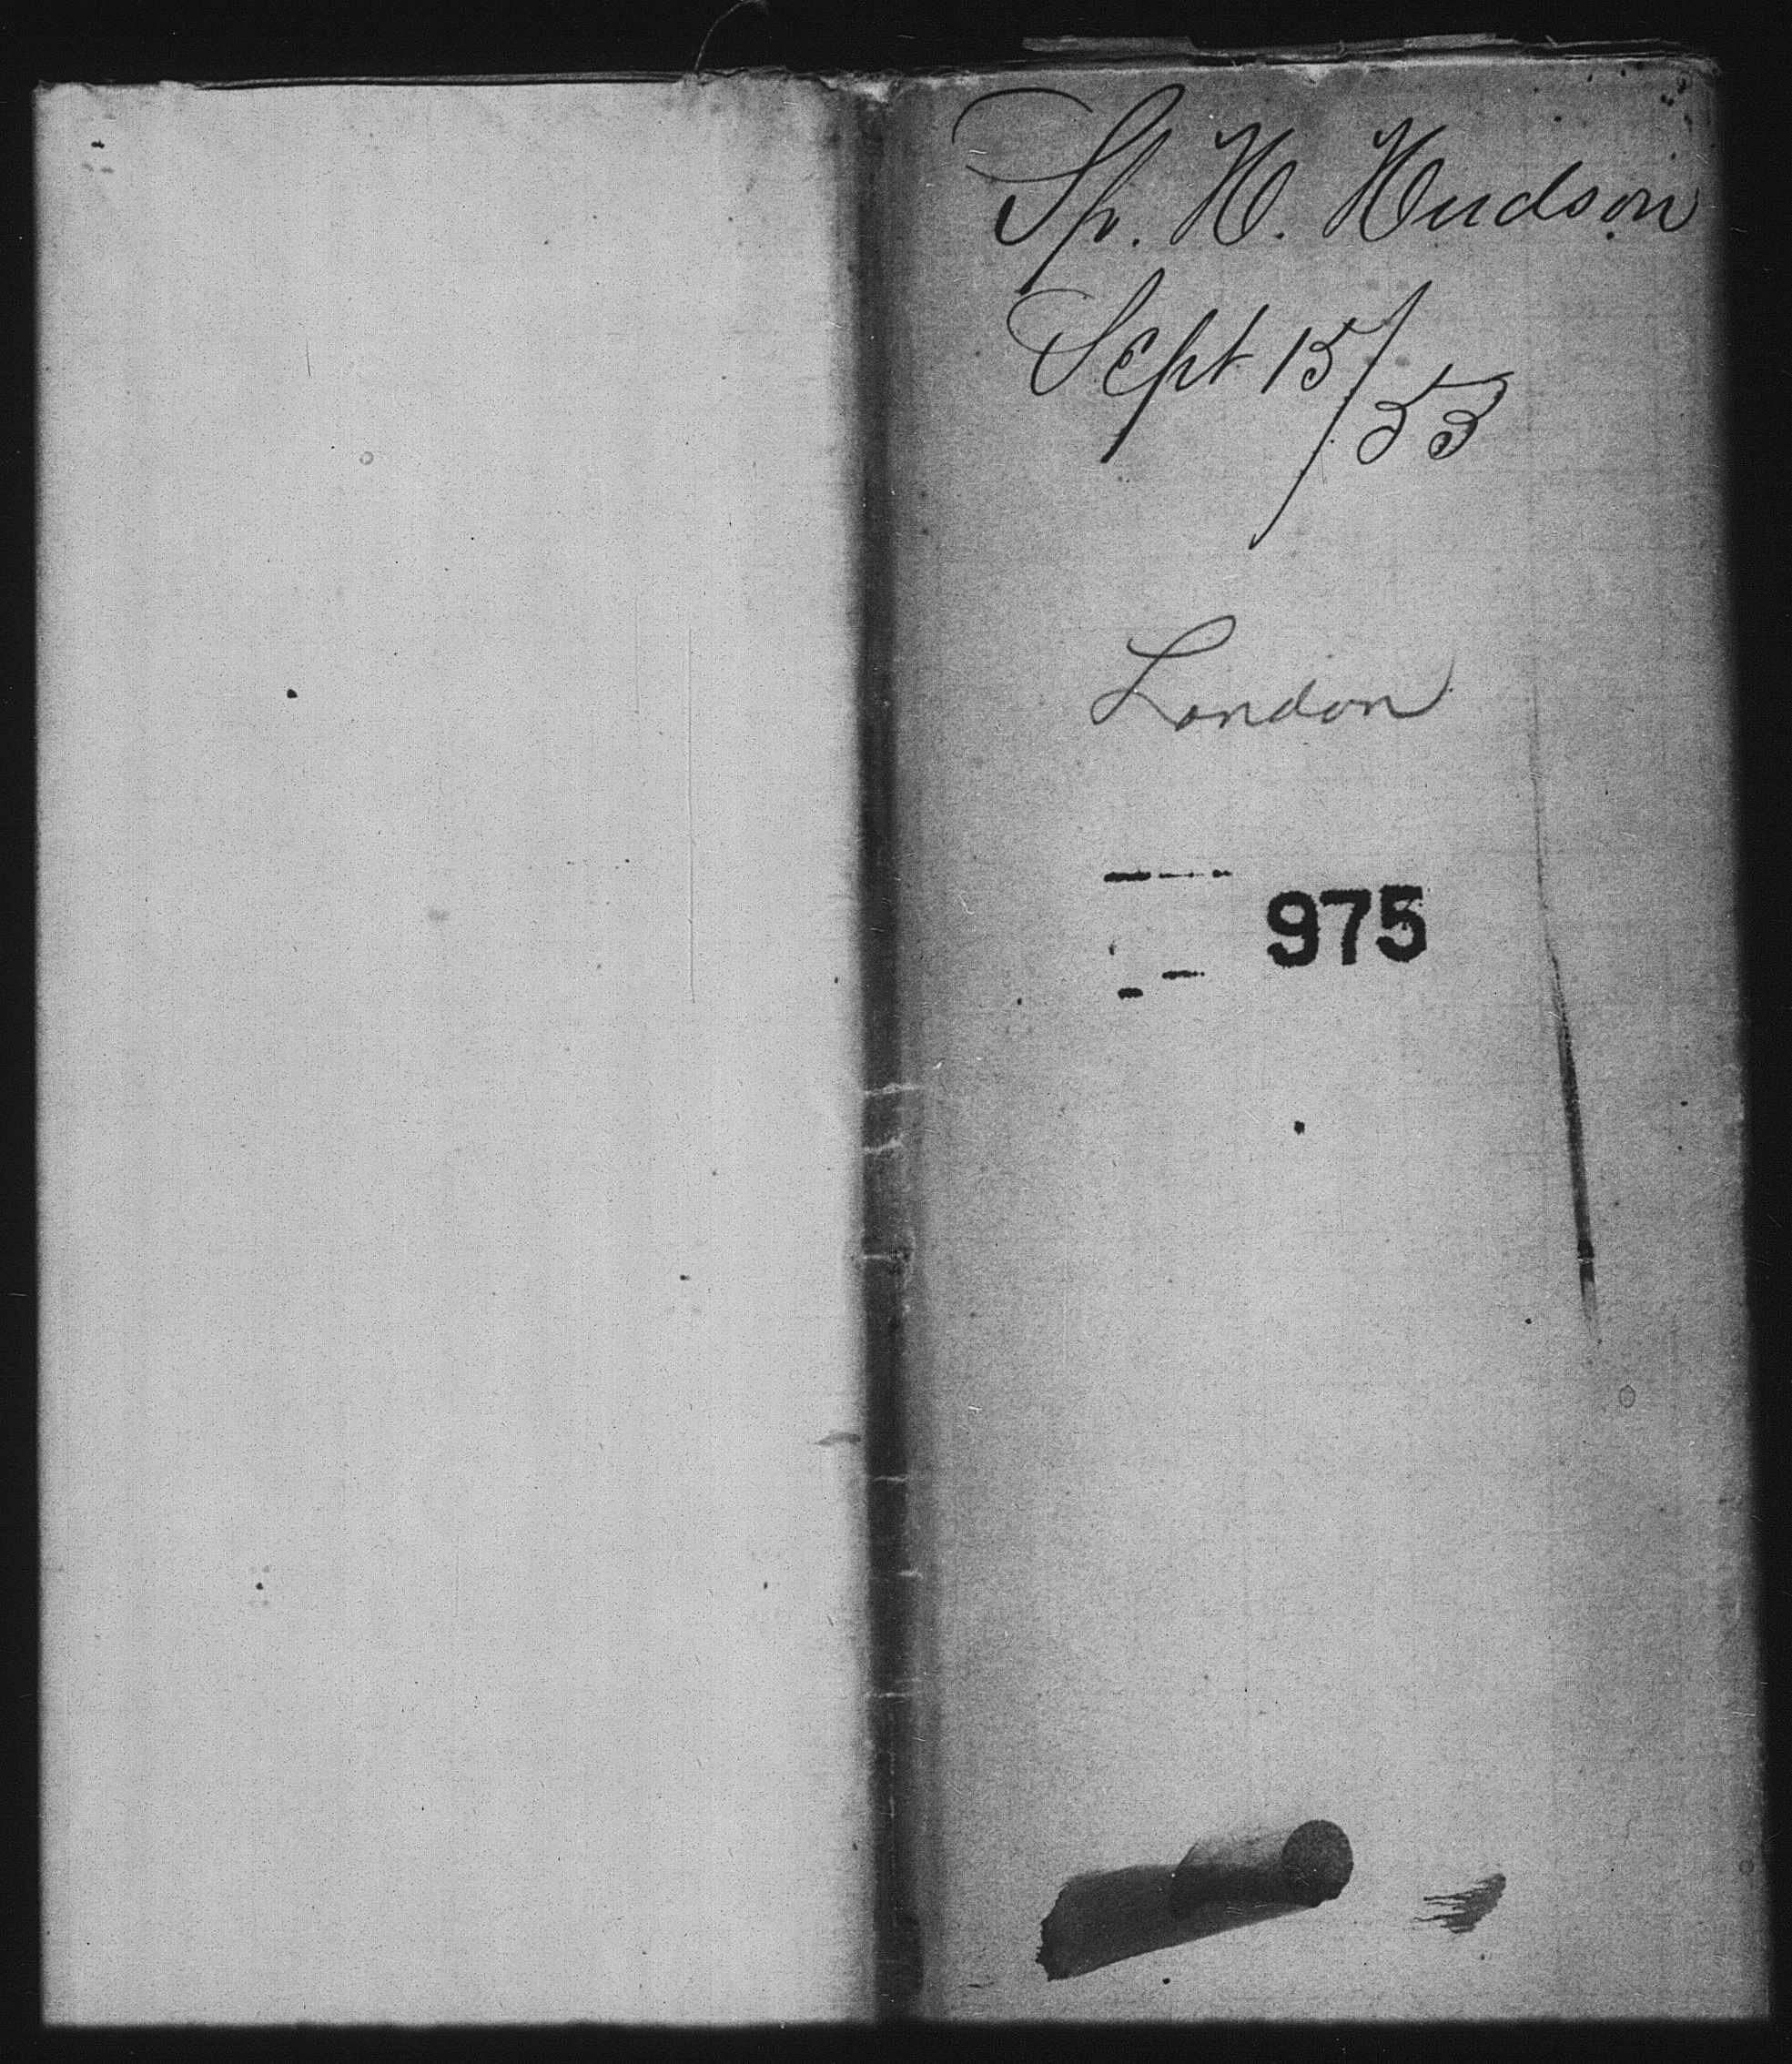 Sp. H. Hudson
Sept 15/53
London
975